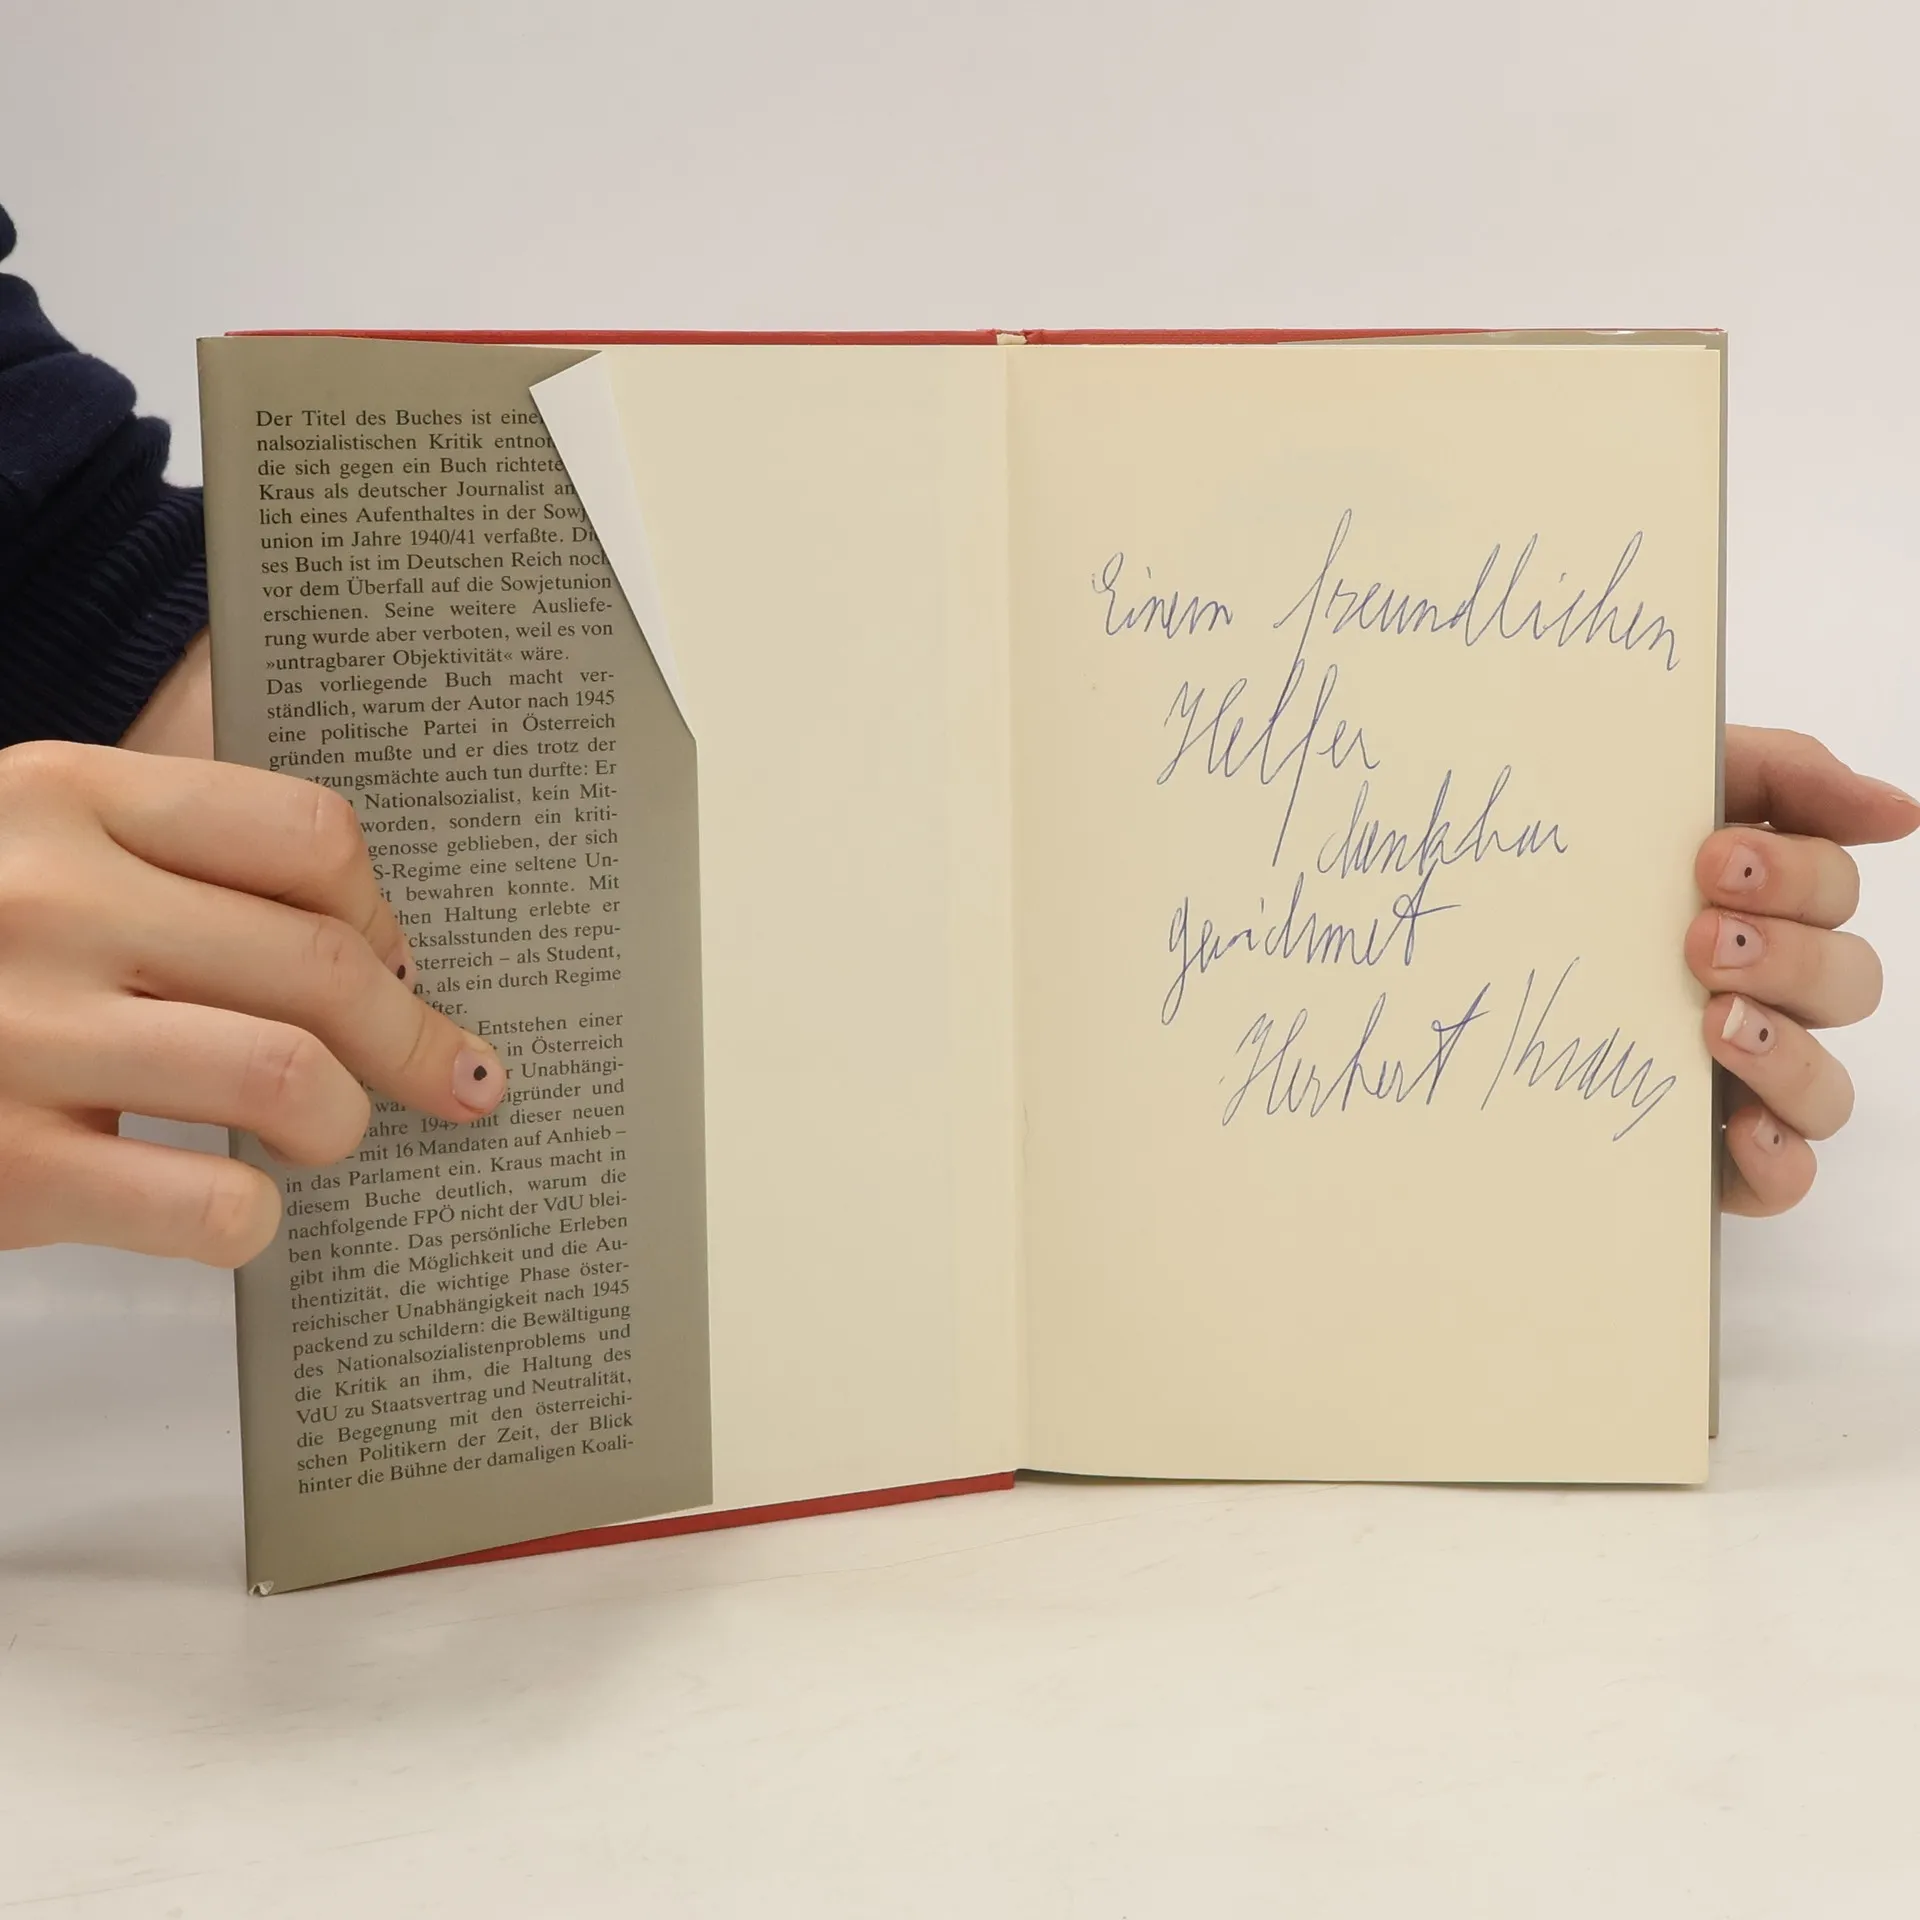 Der Titel des Buches ist eine
nalsozialistischen Kritik
die sich gegen ein Buch richtete
Kraus als deutscher Journalist
lich eines Aufenthaltes in der
union im Jahre 1940/41 verfaßte.
ses Buch ist im Deutschen Reich noch
vor dem Überfall auf die Sowjetunion
erschienen. Seine weitere Ausliefe-
rung wurde aber verboten, weil es von
»untragbarer Objektivität« wäre.
Das vorliegende Buch macht ver-
ständlich, warum der Autor nach 1945
eine politische Partei in Österreich
gründen mußte und er dies trotz der
tzungsmächte auch tun durfte: Er
Nationalsozialist, kein Mit-
worden, sondern ein kriti-
genosse geblieben, der sich
S-Regime eine seltene Un-
it bewahren konnte. Mit
chen Haltung erlebte er
cksalsstunden des repu-
sterreich – als Student,
n, als ein durch Regime
fter.
Entstehen einer
in Österreich
r Unabhängi-
eigründer und
ahre 1949 mit dieser neuen
– mit 16 Mandaten auf Anhieb –
in das Parlament ein. Kraus macht in
diesem Buche deutlich, warum die
nachfolgende FPÖ nicht der VdU blei-
ben konnte. Das persönliche Erleben
gibt ihm die Möglichkeit und die Au-
thentizität, die wichtige Phase öster-
reichischer Unabhängigkeit nach 1945
packend zu schildern: die Bewältigung
des Nationalsozialistenproblems und
die Kritik an ihm, die Haltung des
VdU zu Staatsvertrag und Neutralität,
die Begegnung mit den österreichi-
schen Politikern der Zeit, der Blick
hinter die Bühne der damaligen Koali-
Einem freundlichen
Helfer
dankbar
gewidmet
Herbert Kraus